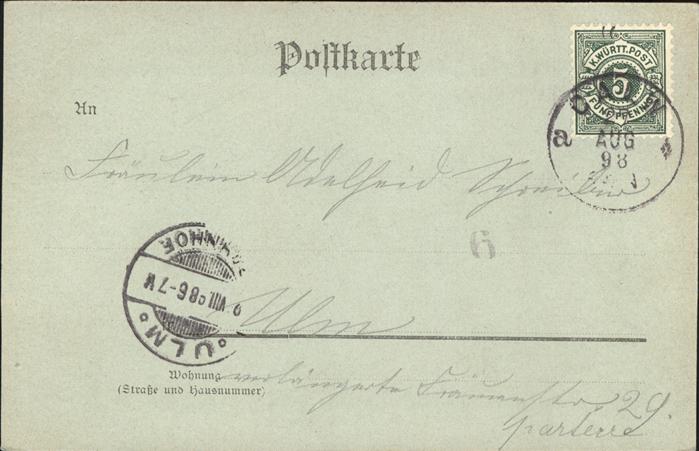 Postkarte
K. WÜRTT. POST
5
FÜNF PFENNIG
CALW
a
AUG
98
An
Fräulein Adelheid Schreiber
6
ULM BAHNHOF
VIII 98 6-7 N
Ulm
Wohnung
(Straße und Hausnummer)
verlängerte Frauenstr 29.
parterre